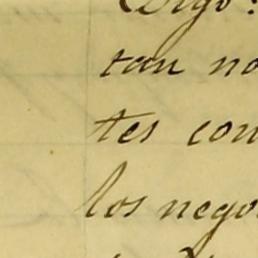 Digo:
tan no
tes con
los nego